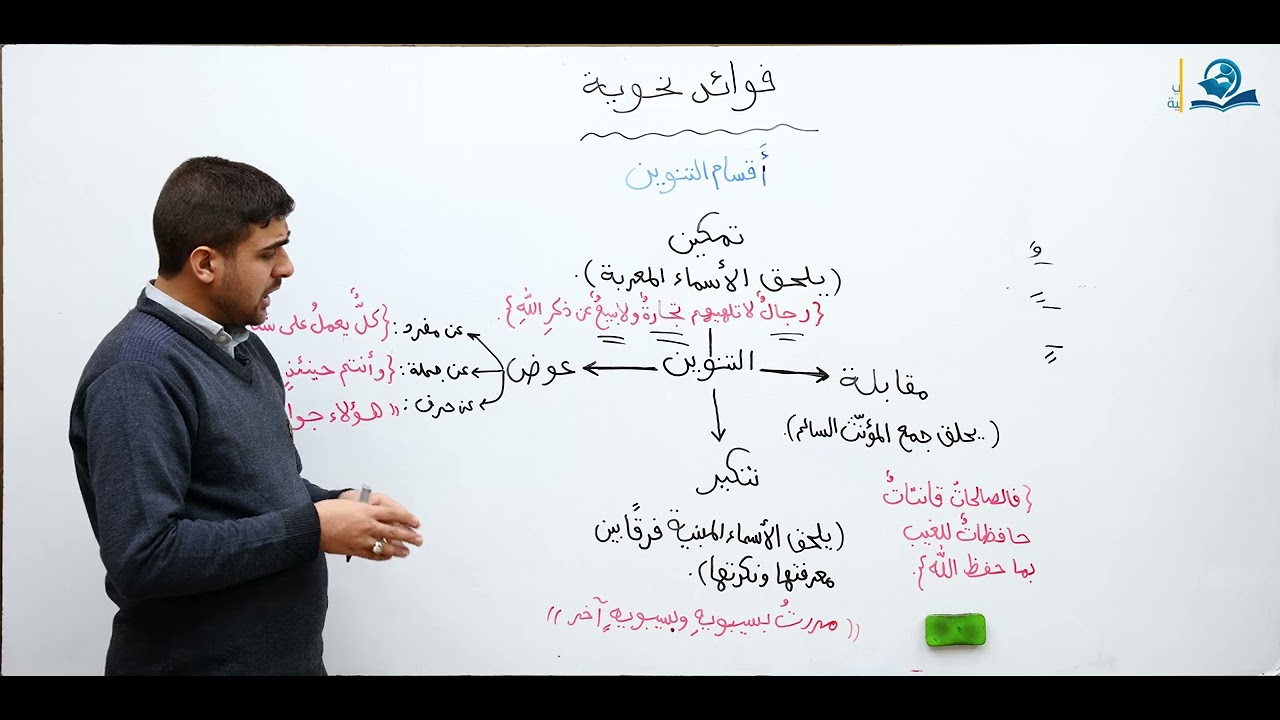 فوائد نحوية
أَقسام التنوين
تمكين
(يلحق الأسماء المعربة).
{رجالٌ لا تلهيهم تجارةٌ ولا بيعٌ عن ذكرِ اللهِ}.
التنوين
مقابلة
(يحلق جمع المؤنّث السالم).
{فالصالحاتُ قانتاتٌ
حافظاتٌ للغيب
بما حفظ اللهُ}.
عوض
عن مفرد: {كلٌّ يعملُ على
عن جملة: {وأنتم حينئذٍ
عن حرف: "هؤلاء
تنكير
(يلحق الأسماء المبنية فرقًا بين
معرفتها ونكرتها).
"مررتُ بسيبويهِ وبسيبويهٍ آخر"